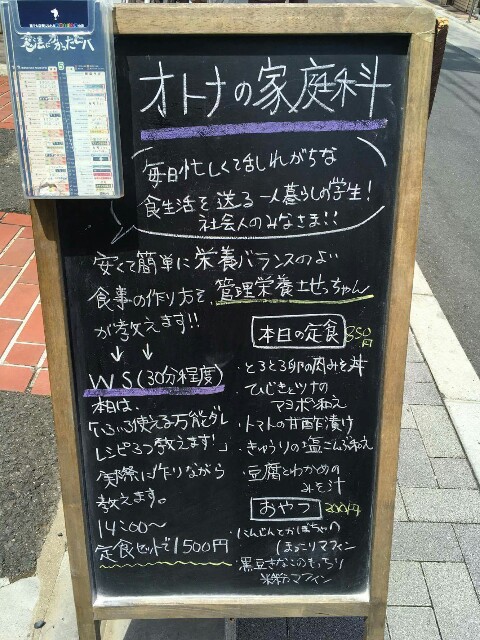 オトナの家庭科
毎日忙しくて乱れがちな
食生活を送る一人暮らしの学生!
社会人のみなさま!!
安くて簡単に栄養バランスのよい
食事の作り方を、管理栄養士せっちゃん
が教えます!!
↓ ↓
WS(30分程度)
本日は、
「いろいろ使える万能ダレ
レシピ3つ教えます!」
実際に作りながら
教えます。
14:00〜
定食セットで1500円
本日の定食 850円
・とろとろ卵の肉みそ丼
・ひじきとツナの
マヨポン和え
・トマトの甘酢漬け
・きゅうりの塩こんぶ和え
・豆腐とわかめの
みそ汁
おやつ 200円
・にんじんとかぼちゃの
ほっこりマフィン
・黒豆きなこのもっちり
米粉マフィン